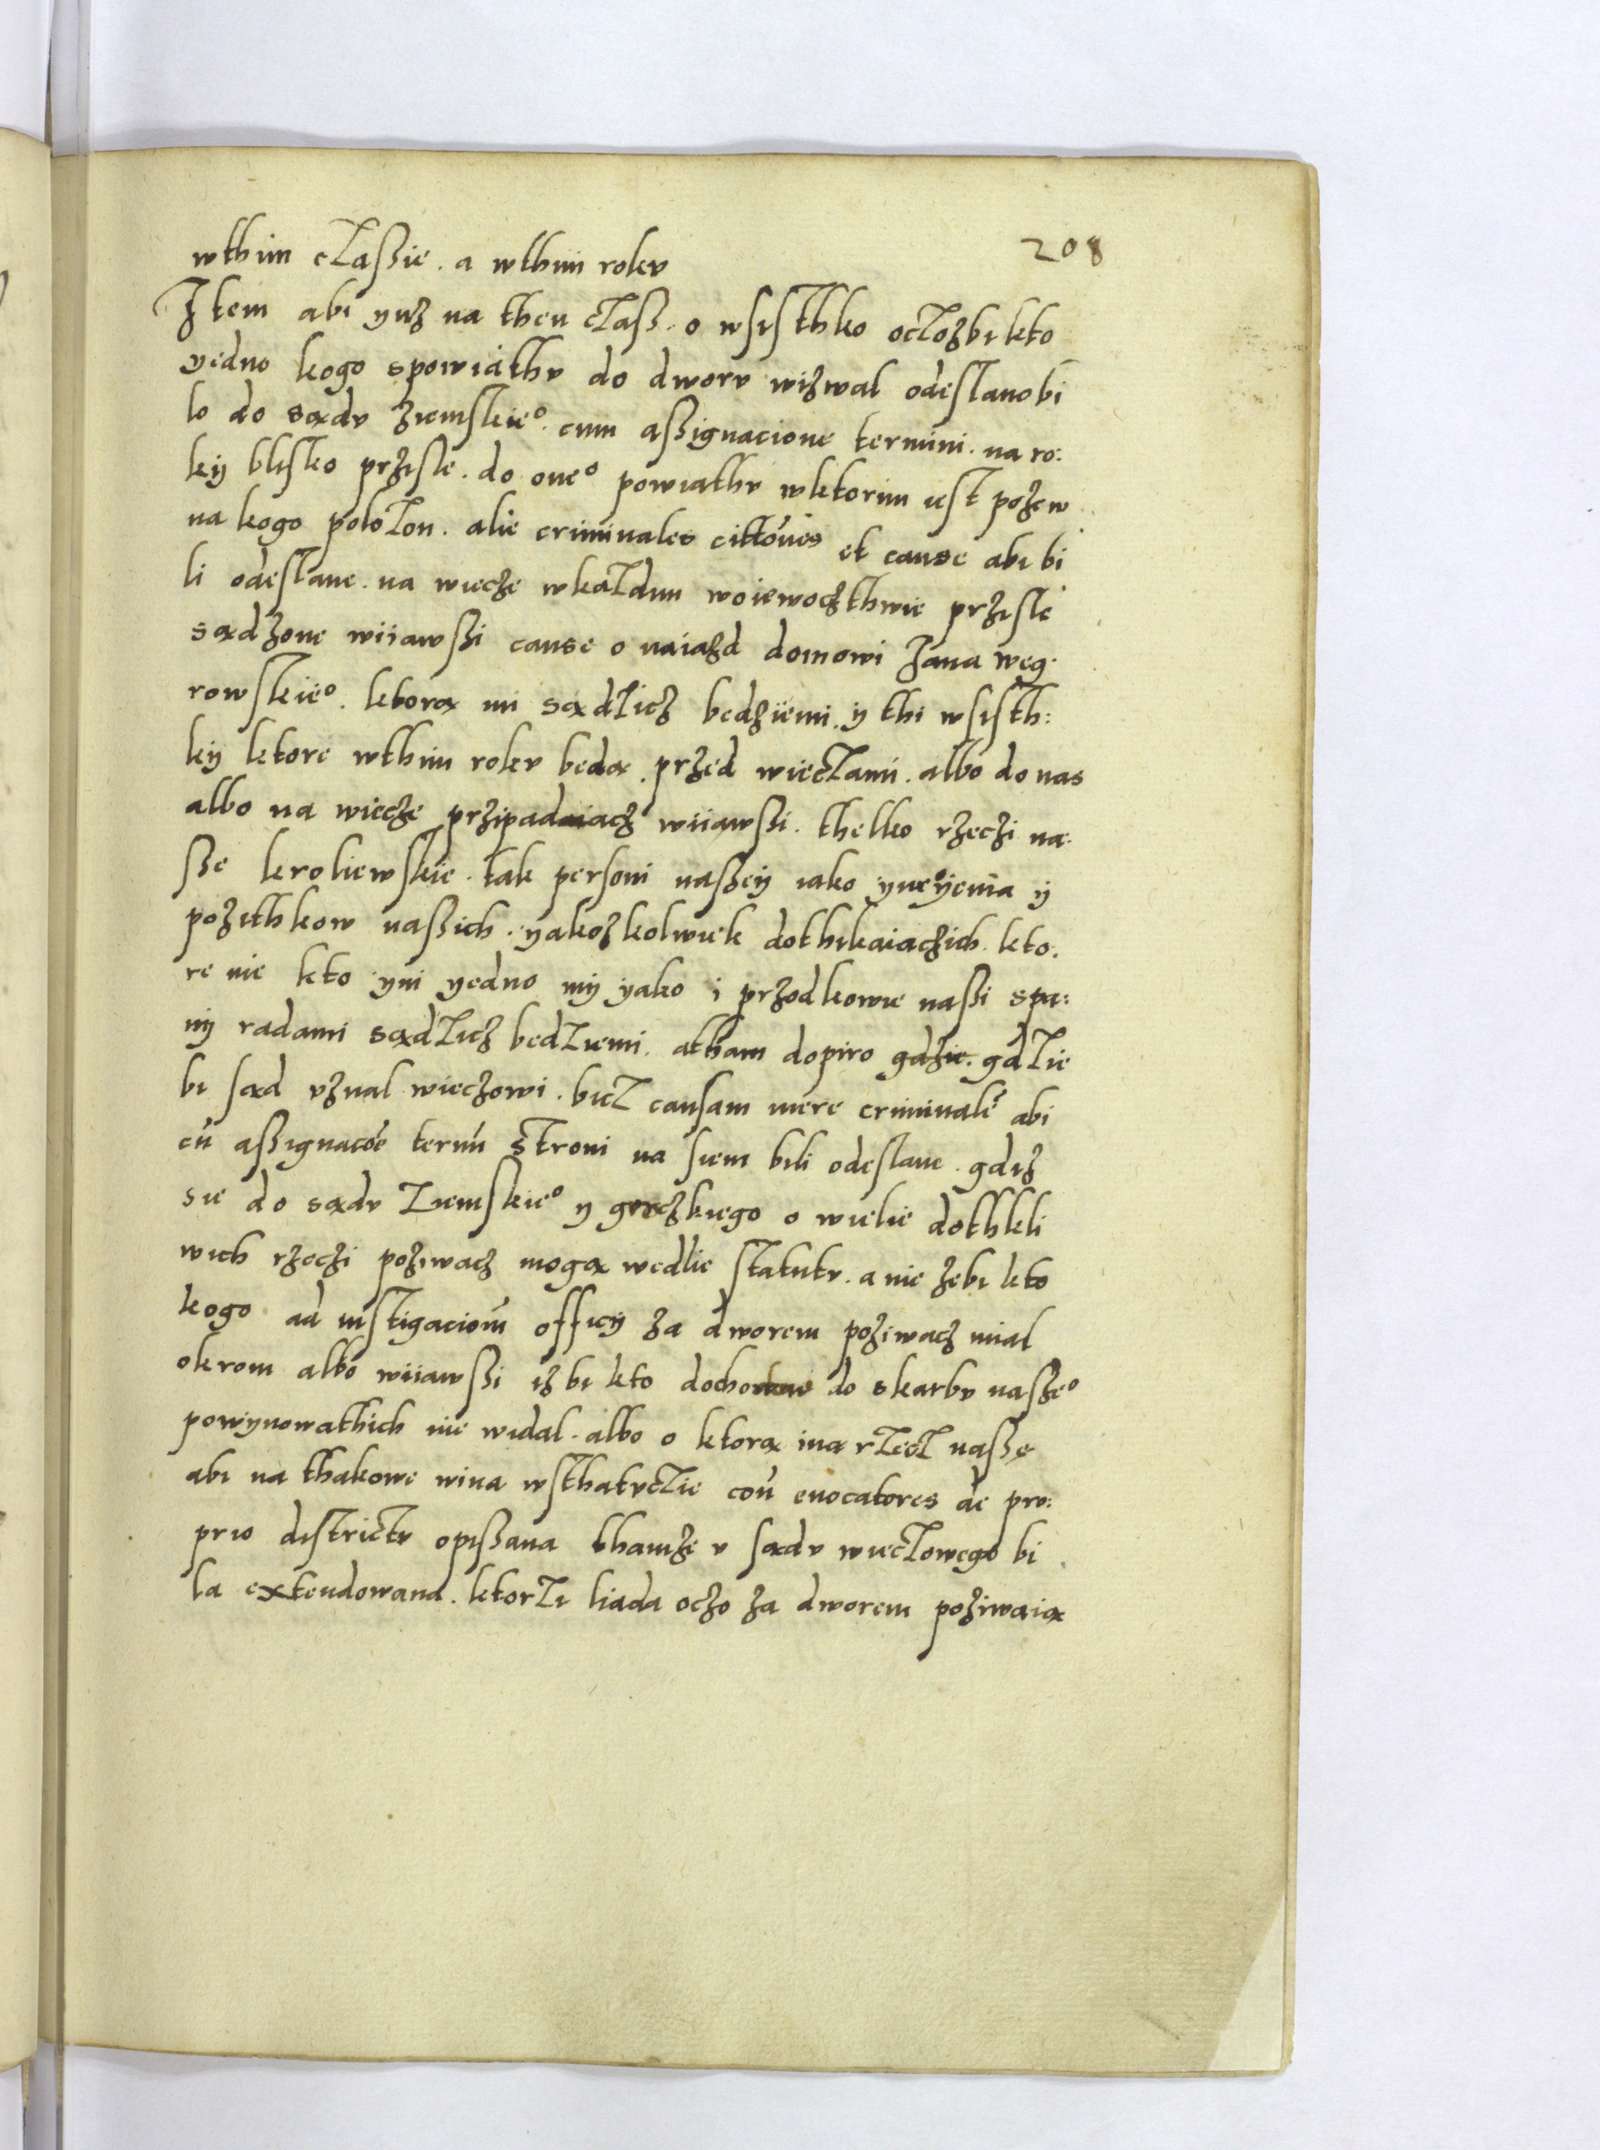 208
wthim czaßie. a wthim rokv
Item abi yuz na then czaß. o wsisthko oczozbi kto
yedno kogo spowiathv do dworv wizwal odeslano bi
lo do sądv ziemskie° cum aßignacione termini. na ro:
kÿ blisko przisle. do one° powiathv wktorim iest pozew
na kogo polozon. alie criminales cittoues et cause abi bi
li odeslane. na wiecze wkazdim woiewoczthwie przisle
sądzone wiiawßi cause o naiazd domowi Jana weg
rowskie°. ktorą mi sądzicz bedziemi. ÿ thi wsisth:
kÿ ktore wthim rokv bedą. przed wieczami. albo do nas
albo na wiecze przipadaiacz wiiawßi. thelko rzeczi na
ße kroliewskie. tak personi naßeÿ iako ymyenia ÿ
pozithkow naßich. yakozkolwiek dothikaiaczich. kto.
re nie kto yni yedno mÿ yako i przodkowie naßi spa:
nÿ radami sądzicz bedziemi. atham dopiro gdzie. gdzie
bi sąd vznal wieczowi. bicz causam mere criminalē abi
cū aßignacōe termī stroni na siem bili odeslane. gdiz
sie do sądv ziemskie° y groczkiego o wielie dothkli
wich rzeczi poziwacz mogą wedlie statutv. a nie zebi kto
kogo ad instigacioūm officÿ za dworem poziwacz mial
okrom albo wiiawßi iz bi kto dochodow do skarbv naße°
powynowathich nie widal. albo o ktorą iną rzecz naßę
abi na thakowe wina wsthatvczie coū euocatores de pro:
prio districtv opißana thamże v sądv wieczowego bi
la extendowana. ktorzi liada oczo za dworem poziwaią